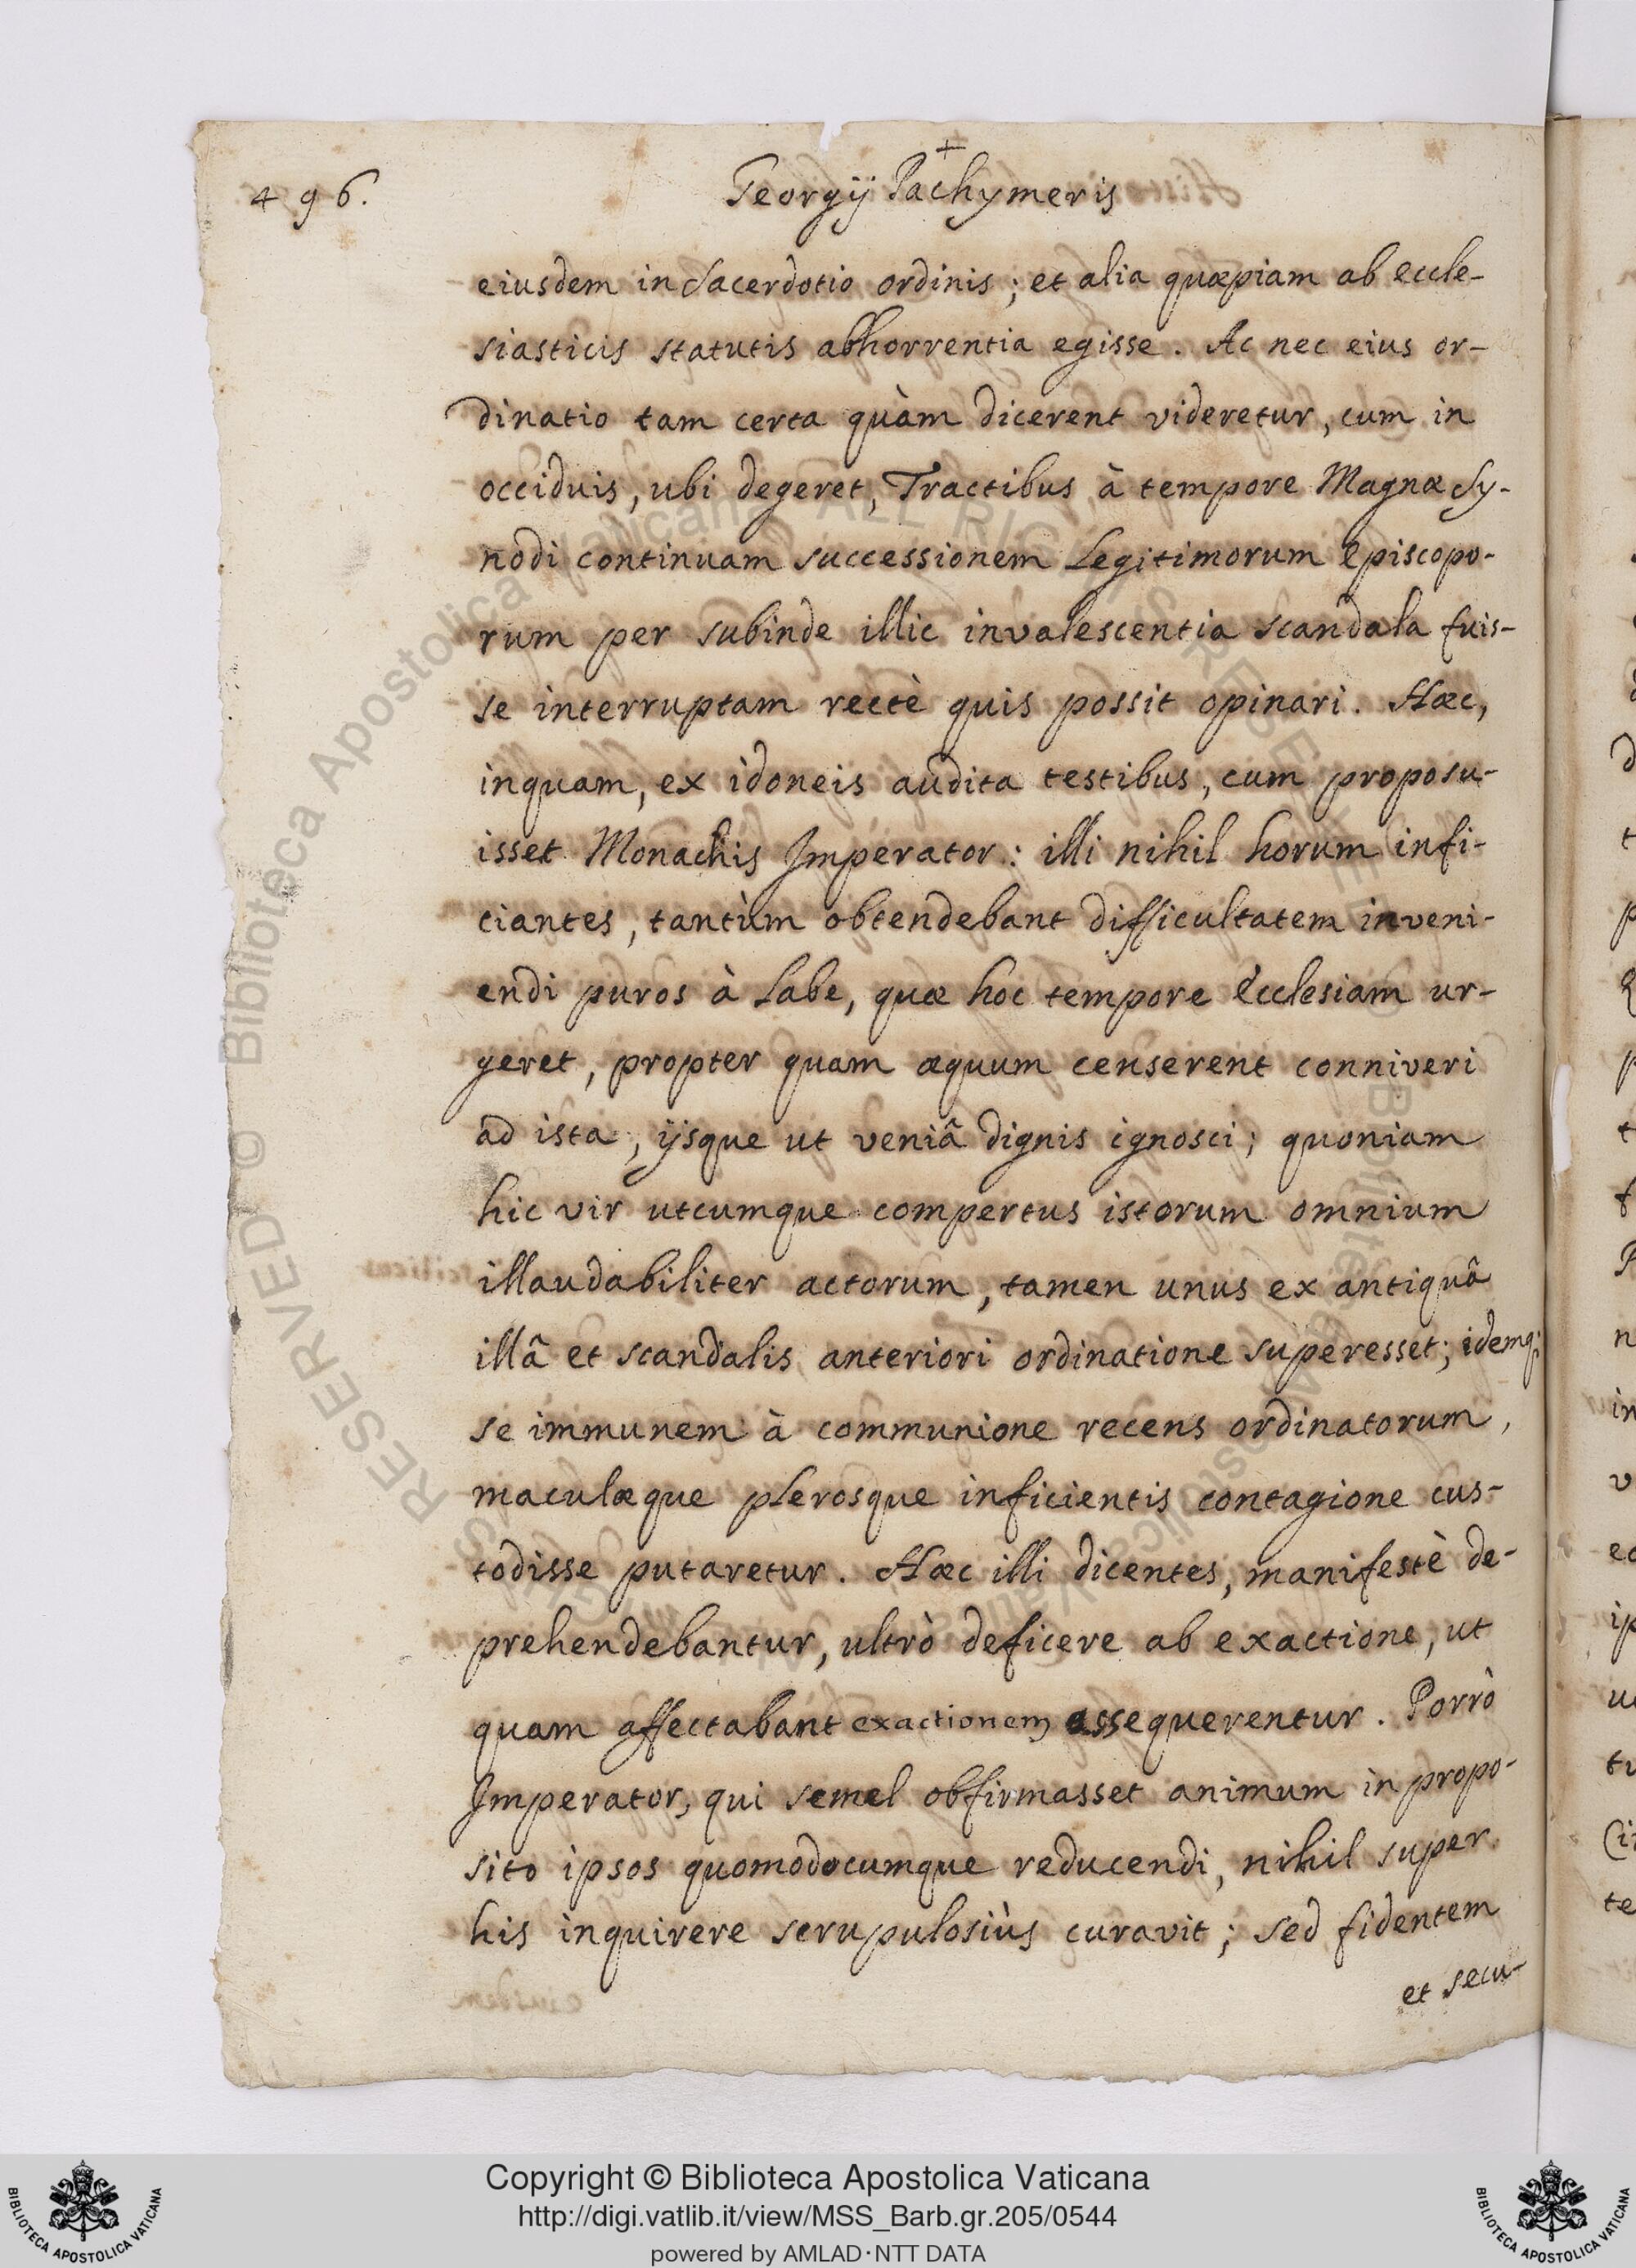 496.
+
Georgÿ Pachymeris
eiusdem in Sacerdotio ordinis; et alia quæpiam ab eccle-
siasticis statutis abhorrentia egisse. Ac nec eius or-
dinatio tam certa quàm dicerent videretur, cum in
occiduis, ubi degeret, Tractibus à tempore Magnæ Sy-
nodi continuam successionem Legitimorum Episcopo-
rum per subinde illic invalescentia scandala fuis-
se interruptam rectè quis possit opinari. Hæc,
inquam, ex idoneis audita testibus, cum proposu-
isset Monachis Imperator: illi nihil horum infi-
ciantes, tantùm obtendebant difficultatem inveni-
endi puros à Labe, quæ hoc tempore Ecclesiam ur-
geret, propter quam æquum censerent conniveri
ad ista, ijsque ut veniâ dignis ignosci; quoniam
hic vir utcumque compertus istorum omnium
illaudabiliter actorum, tamen unus ex antiquâ
illâ et scandalis anteriori ordinatione superesset; idemq;
se immunem à communione recens ordinatorum,
maculæque plerosque inficientis contagione cus-
todisse putaretur. Hæc illi dicentes, manifestè de-
prehendebantur, ultrò deficere ab exactione, ut
quam affectabant exactionem assequerentur. Porrò
Imperator, qui semel obfirmasset animum in propo-
sito ipsos quomodocumque reducendi, nihil super
his inquirere scrupulosiùs curavit; sed fidentem
et secu-
Copyright © Biblioteca Apostolica Vaticana
http://digi.vatlib.it/view/MSS_Barb.gr.205/0544
powered by AMLAD·NTT DATA
BIBLIOTECA APOSTOLICA VATICANA
BIBLIOTECA APOSTOLICA VATICANA